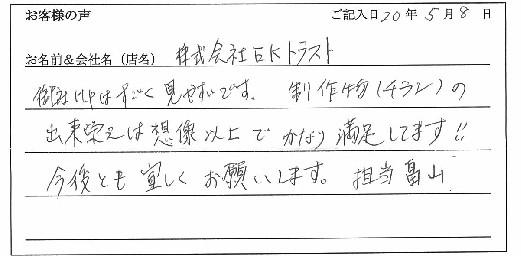 お客様の声 ご記入日 20年 5月 8日
お名前&会社名（店名） 株式会社EKトラスト
御社HPはすごく見やすいです。 制作物(チラシ)の
出来栄えは想像以上でかなり満足してます!!
今後とも宜しくお願いします。 担当畠山